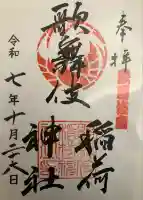 奉拝
歌舞伎
稲荷
神社
令和七年十月二六日